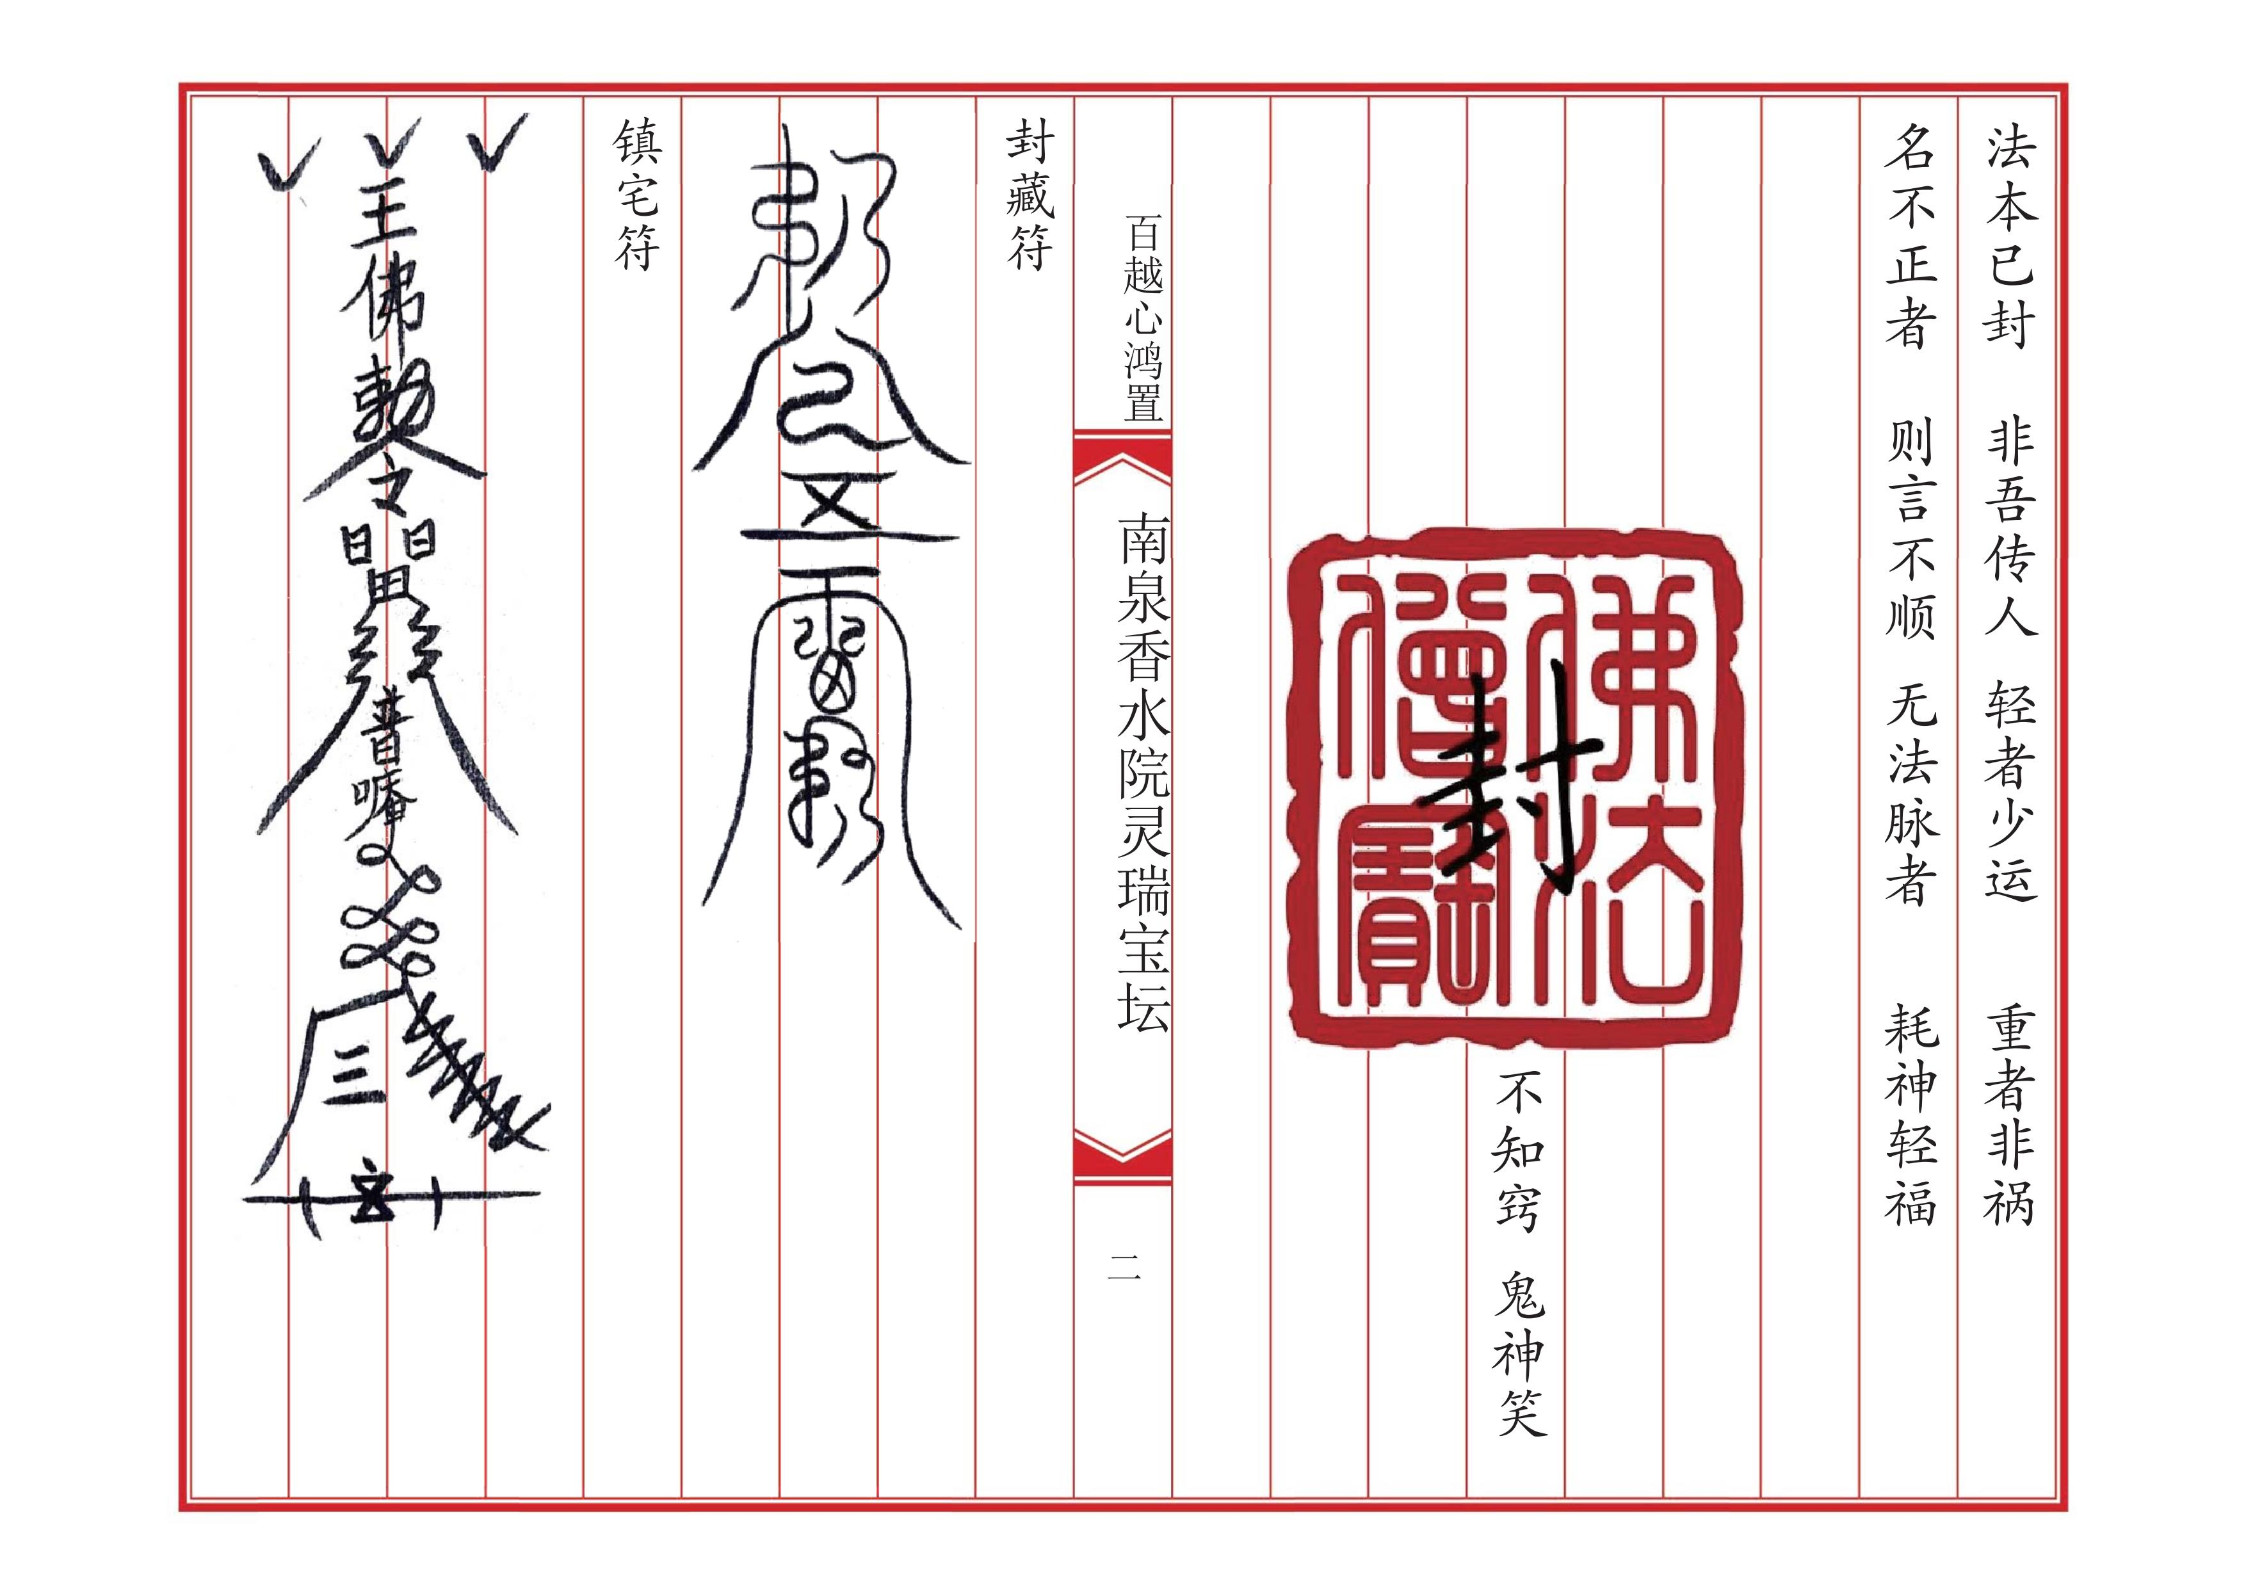 法本已封 非吾传人 轻者少运 重者非祸
名不正者 则言不顺 无法脉者 耗神轻福
佛法僧寶
封
不知窍 鬼神笑
百越心鸿置
南泉香水院灵瑞宝坛
二
封藏符
镇宅符
王佛敕令
文
日日
田
普唵
三